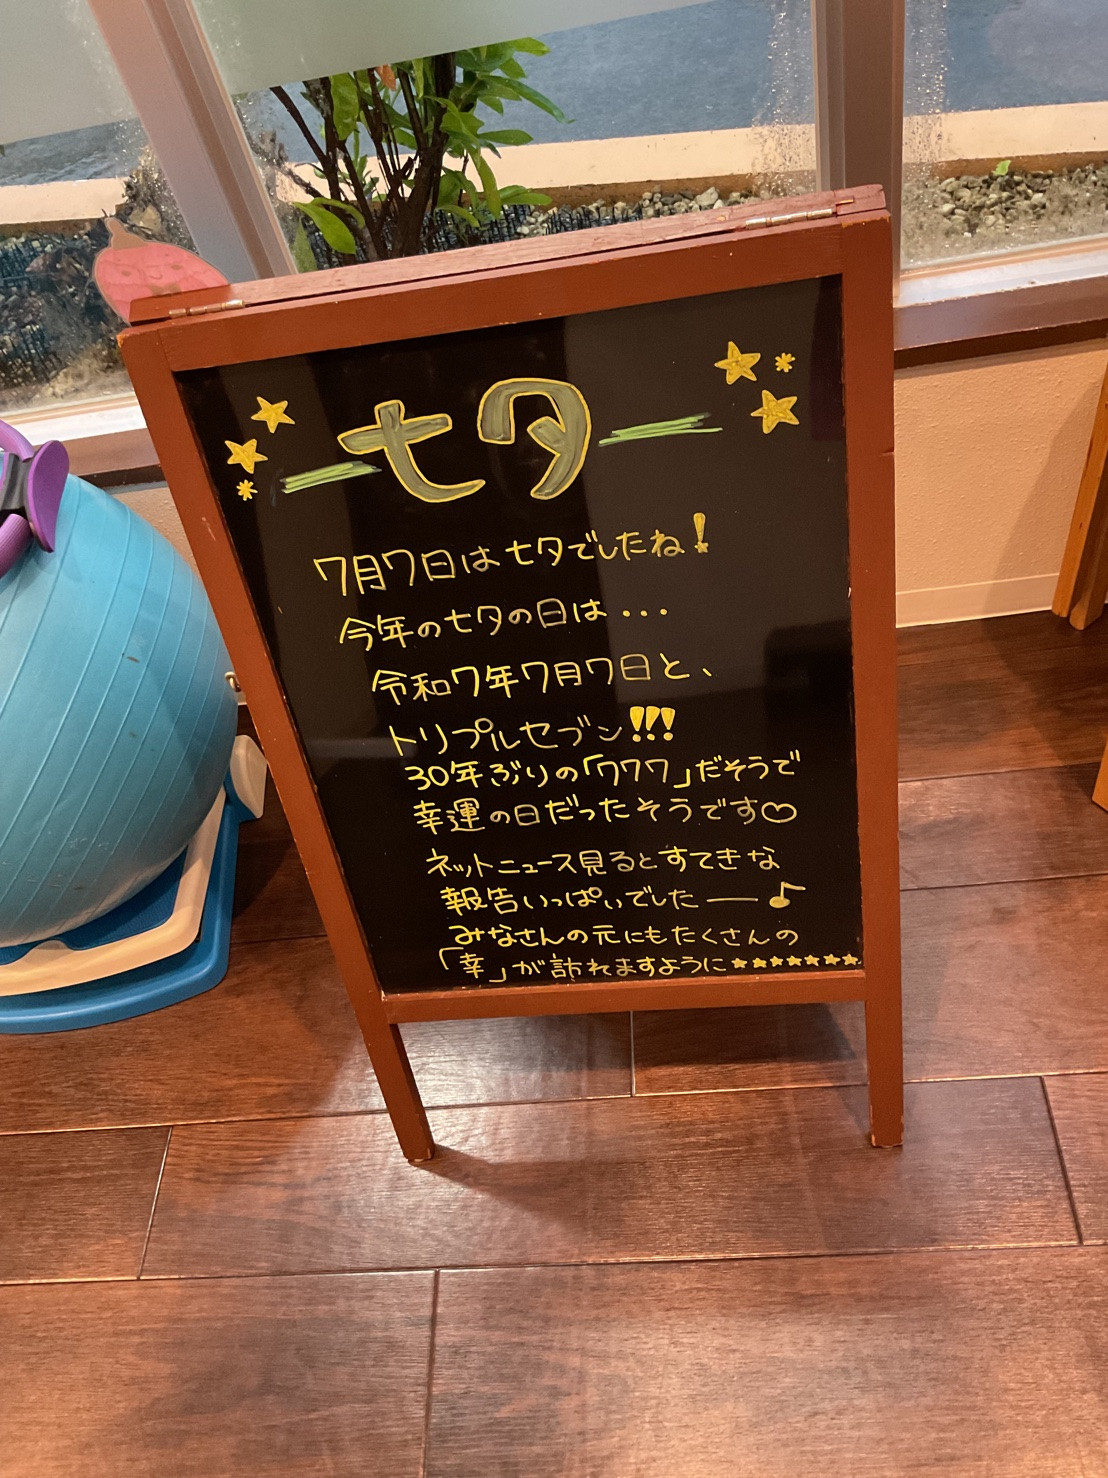 七夕
7月7日は七夕でしたね!
今年の七夕の日は・・・
令和7年7月7日と、
トリプルセブン!!!
30年ぶりの「777」だそうで
幸運の日だったそうです♡
ネットニュース見るとすてきな
報告いっぱいでした──♪
みなさんの元にもたくさんの
「幸」が訪れますように★★★★★★★